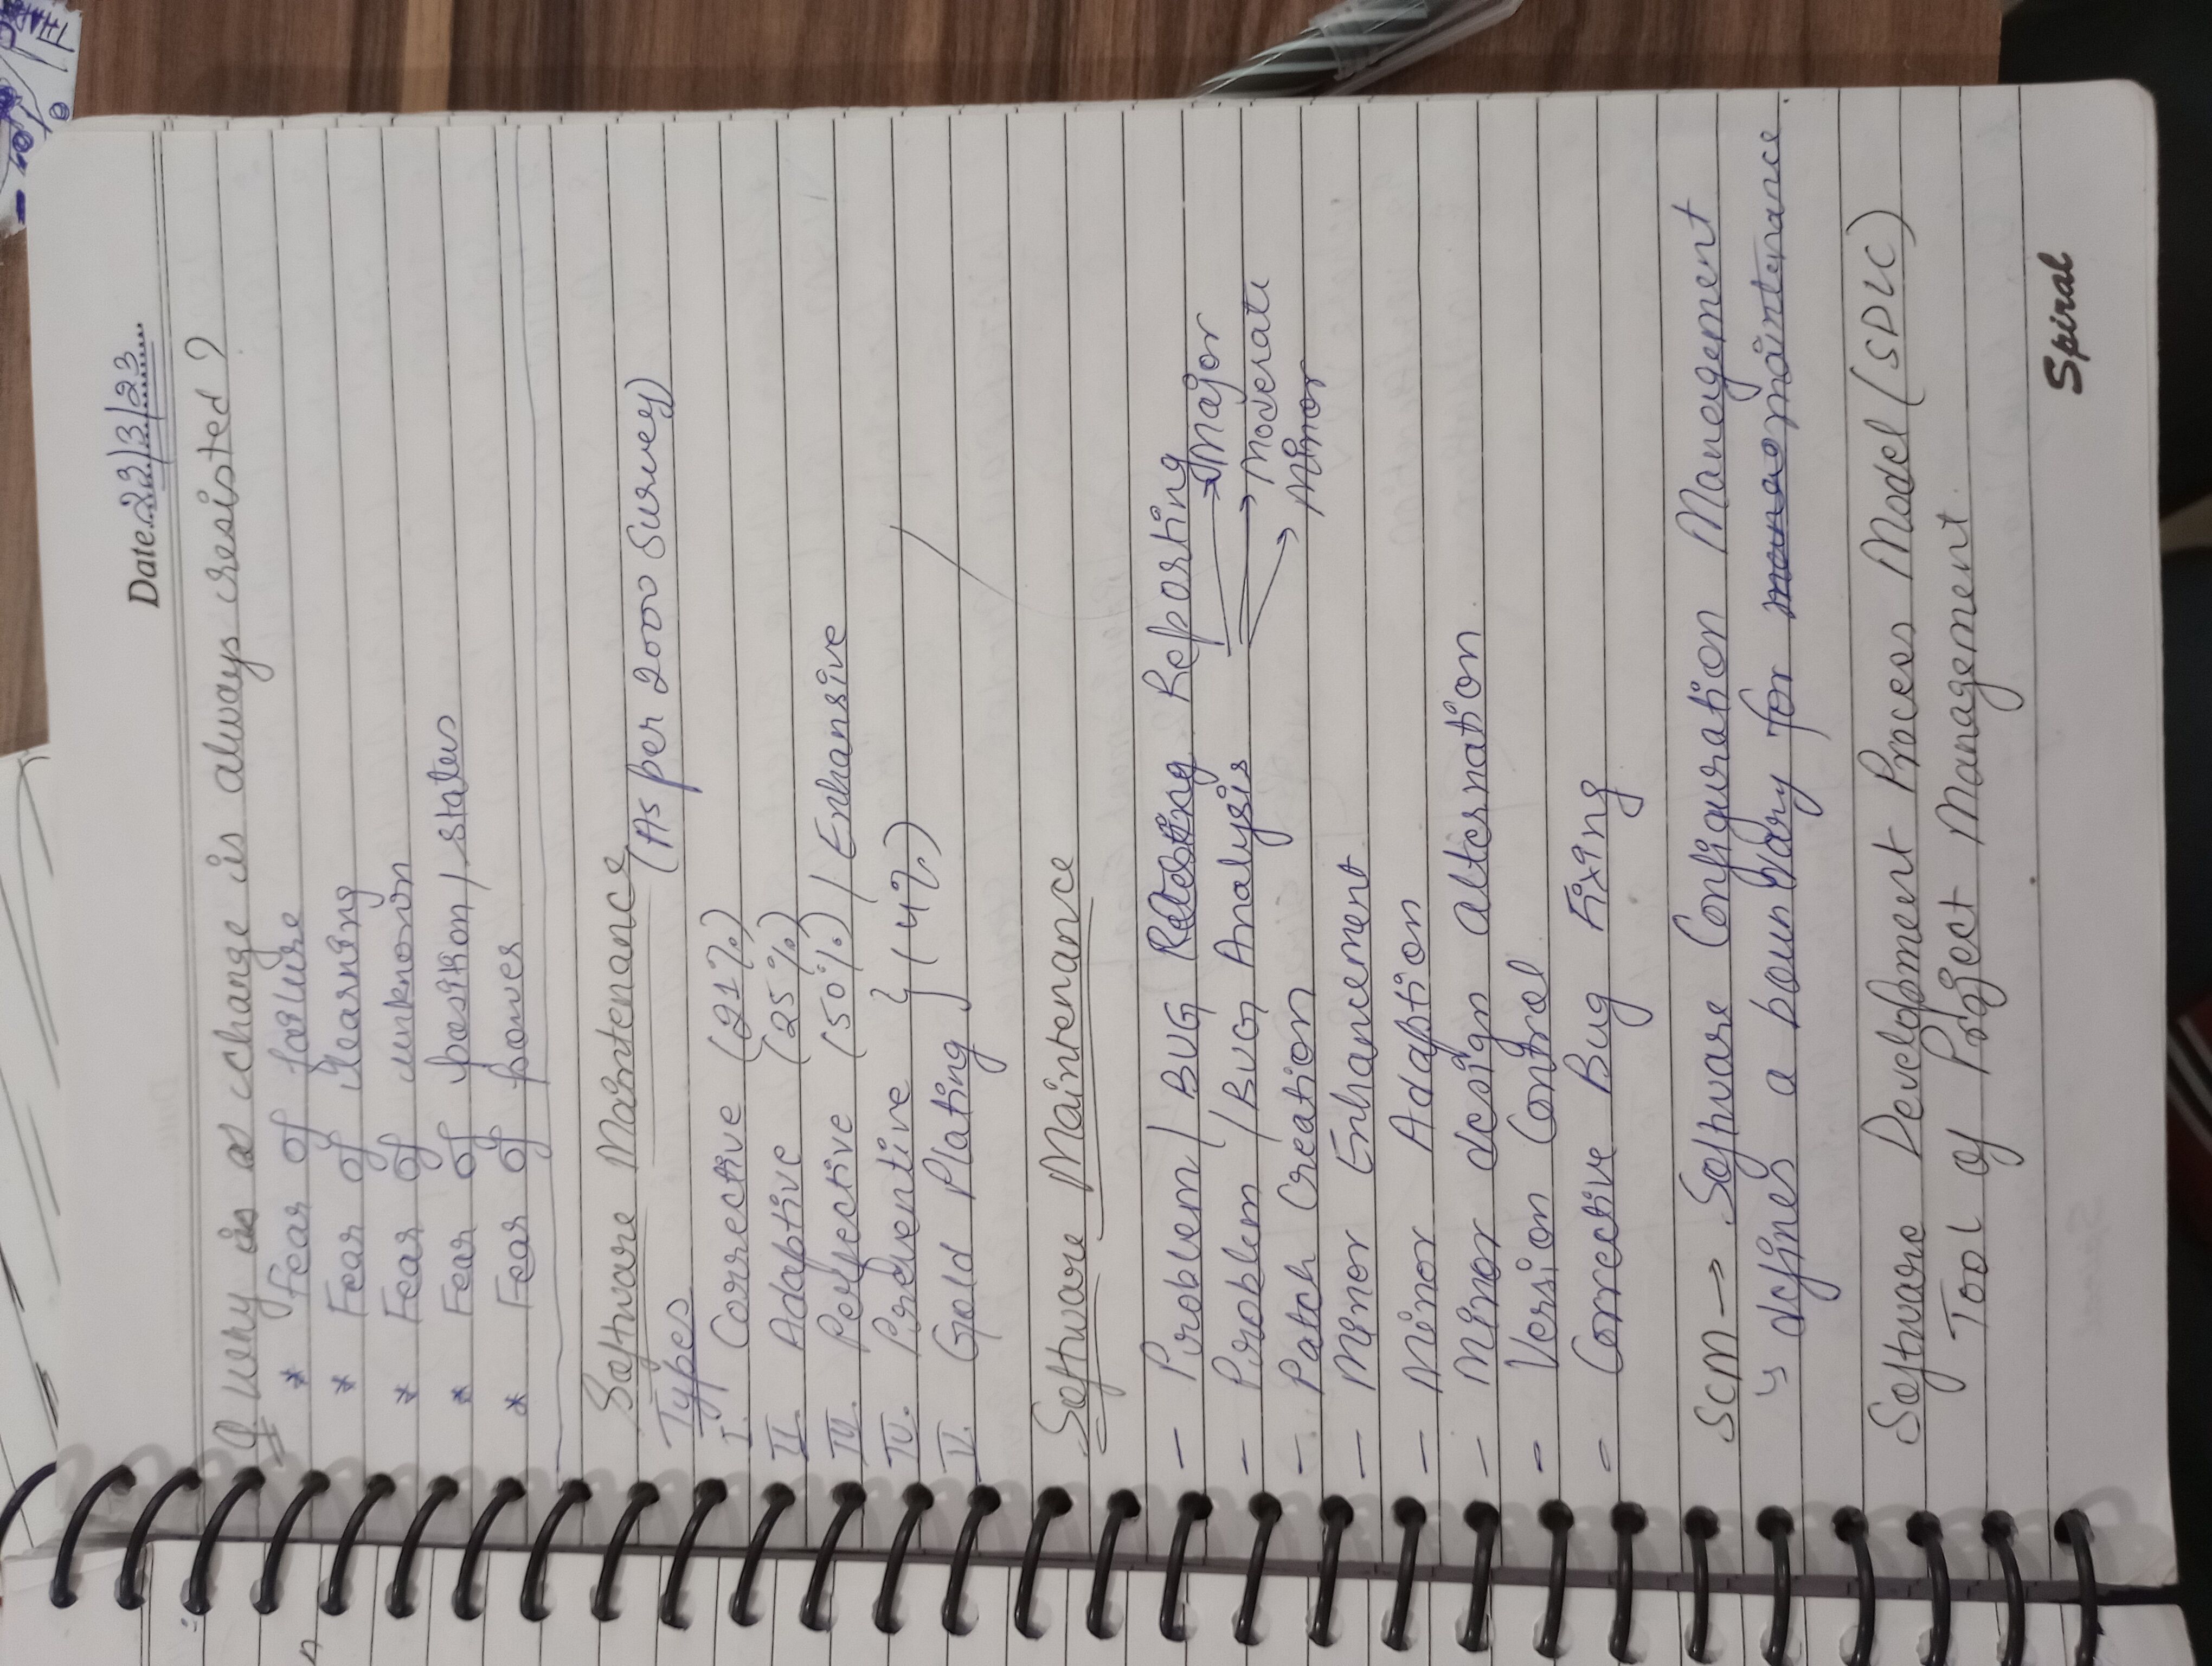 Date 23/3/23
Q Why is a change is always resisted ?
* Fear of failure
* Fear of learning
* Fear of unknown
* Fear of position / status
* Fear of power
Software Maintenance
Types (As per 2000 Survey)
I. Corrective (21%)
II. Adaptive (25%)
III. Perfective (50%) / Enhansive
IV. Preventive } (4%)
V. Gold Plating
Software Maintenance
- Problem / BUG Reporting
- Problem / BUG Analysis → Major
→ Moderate
→ Minor
- Patch Creation
- Minor Enhancement
- Minor Adaption
- Minor design alternation
- Version Control
- Corrective Bug Fixing
SCM → Software Configuration Management
↳ defines a boundary for maintenance
Software Development Process Model (SDLC)
Tool of Project Management
Spiral